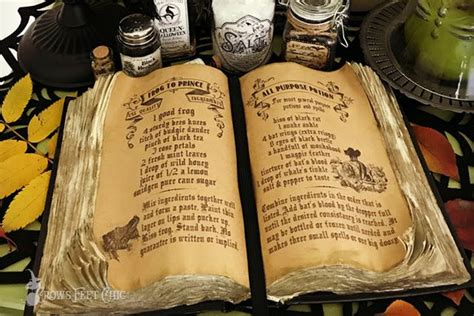 QUEEN
HALLOWEEN
SALT
FROG TO PRINCE
1 good frog
4 sturdy bees knees
titch of budgie dander
pinch of black tea
3 rose petals
2 fresh mint leaves
1 drop of wild honey
juice of 1/2 a lemon
smidgen pure cane sugar
Mix ingredients together well
and form a paste. Paint thin
layer on lips and pucker up.
Kiss frog. Stand back. No
guarantee is written or implied.
ALL PURPOSE POTION
For most general purpose
potions and spells
kiss of black cat
1 snake ankle
4 bat wings (extra crispy)
8 eyes of black beetle
a handful of wormshood
1 magpie feather
tincture of bat's blood
1 drop of whale's tinkle
salt & pepper to taste
Combine ingredients in the order that is
listed. Add bat's blood by the dropper full
until the desired consistency is reached.
may be bottled or frozen until needed and
makes three small spells or one big doozy.
CROWS FEET CHIC